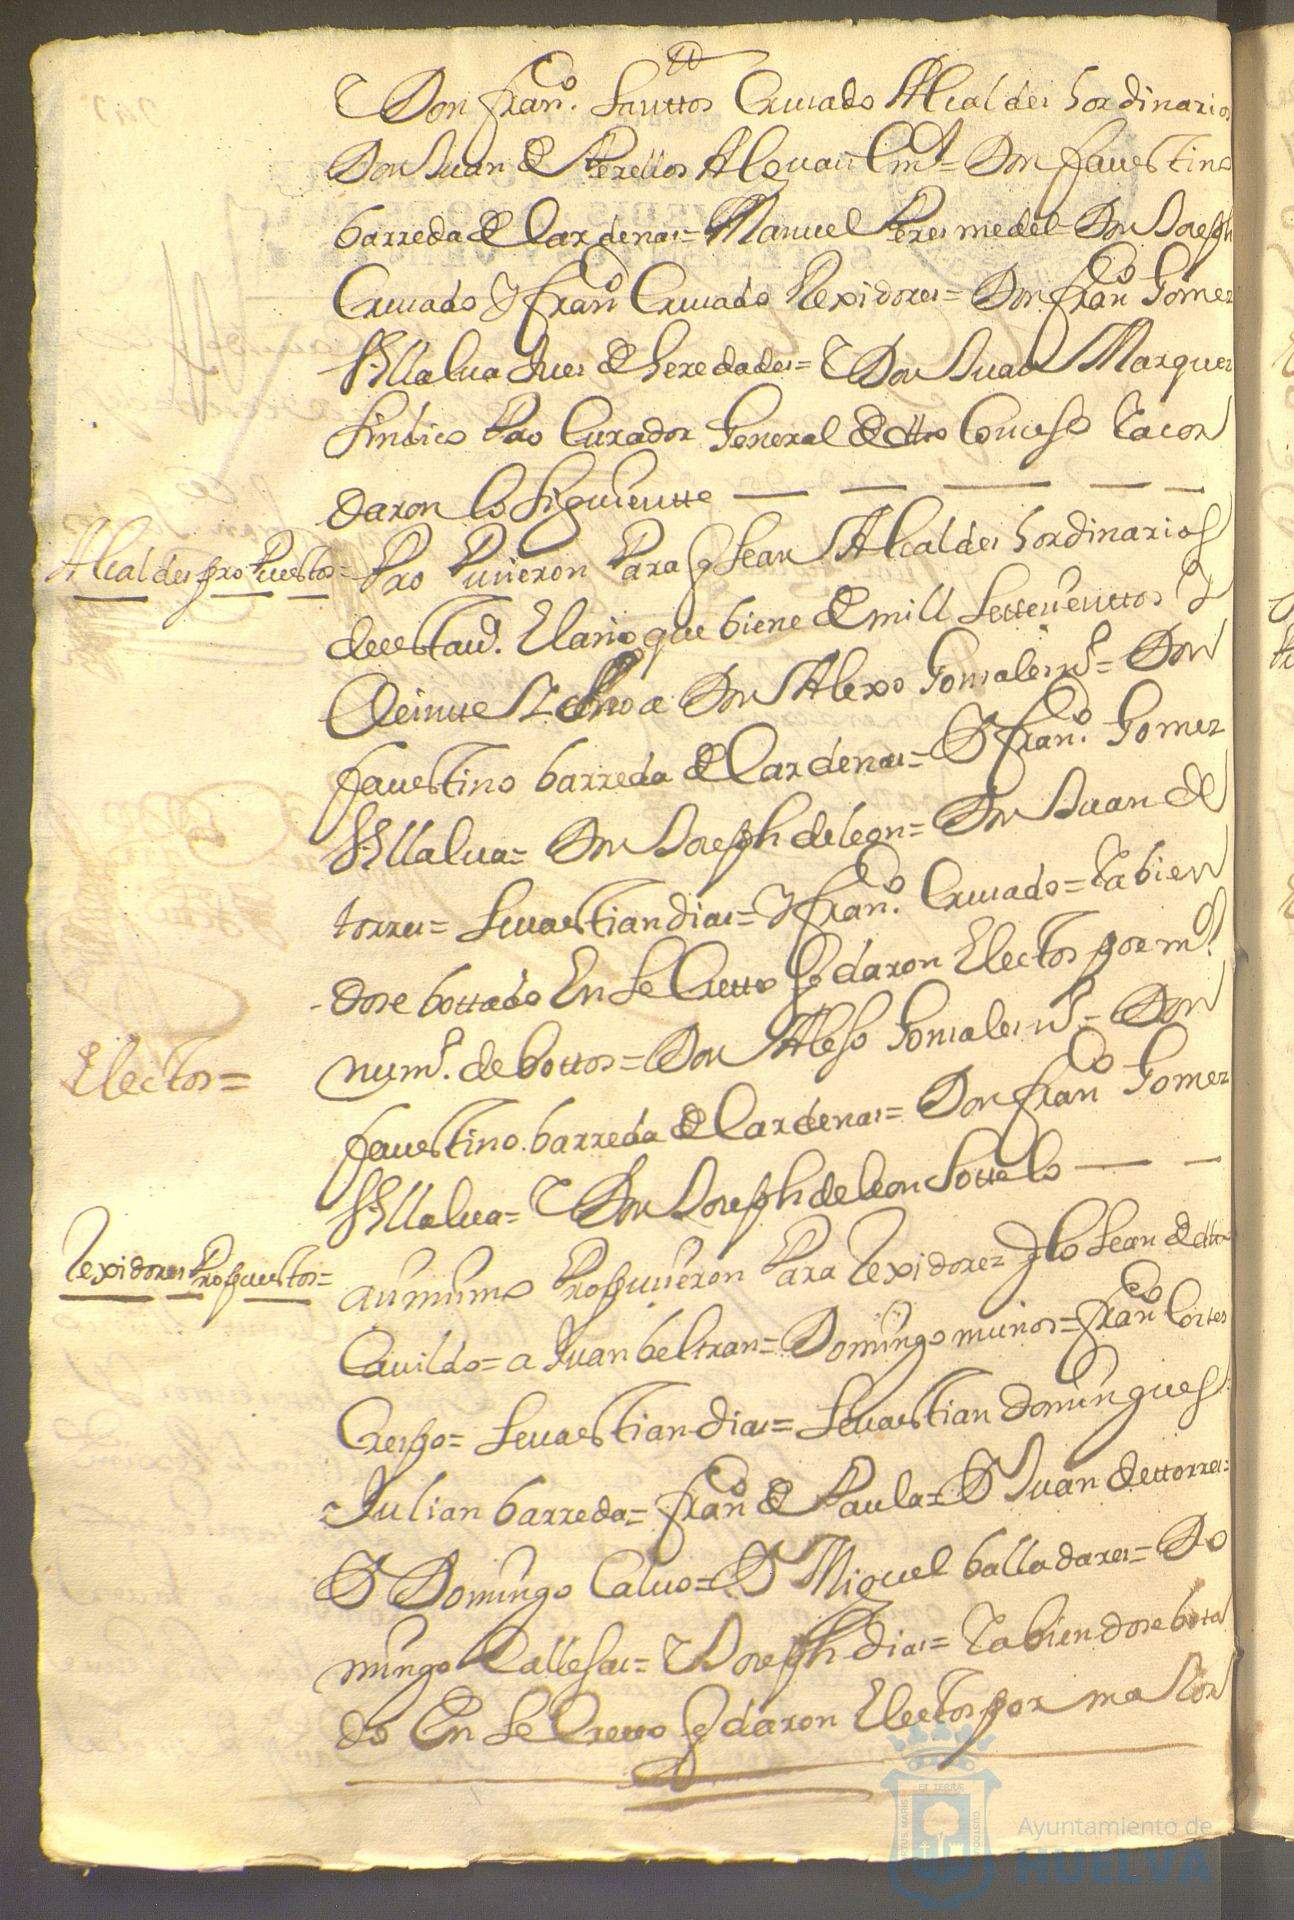 Y Don fran.co Santtos Cruzado Alcaldes hordinarios
Don Juan de Perellos Alguaçil m.r = Don faustino
barreda de Cardenas = Manuel Peres medel = Don Joseph
Cruzado Y fran.co Cruzado Rexidores = Don fran.co Gomez
Villalua Jues de heredades = Y Don Juan Marquez
Sindico Procurador General de dtto Consejo Y acor
daron lo Siguientte
Alcaldes propuestos =
Propusieron Para q Sean Alcaldes hordinarios
de esta v.a El año que biene de mill Settesienttos Y
Veintte Y uno a Don Alexo Gonsales = Don
faustino barreda de Cardenas = D fran.co Gomez
Villalua = Don Joseph de leon = Don Juan de
torres = Seuastian dias = Y fran.co Cruzado = Y abien
dose bottado En Secretto q daron Electos por m.r
Electos =
num.o de bottos = Don Alexo Gonsales = Don
faustino barreda de Cardenas = Don fran.co Gomez
Villalua = Y Don Joseph de leon Sottelo
Rexidores Propuestos =
asimismo Propusieron Para Rexidores q lo Sean de dtto
Cauildo = a Juan beltran = Domingo muños = fran.co Cortes
Crespo = Seuastian dias = Seuastian domingues =
Julian barreda = fran.co de Paula = D Juan de ttorres =
D Domingo Caluo = D Miguel balladares = Do
mingo Vallesas = Y Joseph dias = Y abiendose bota
do En Secreto q daron Electos por maior
Ayuntamiento de
HUELVA